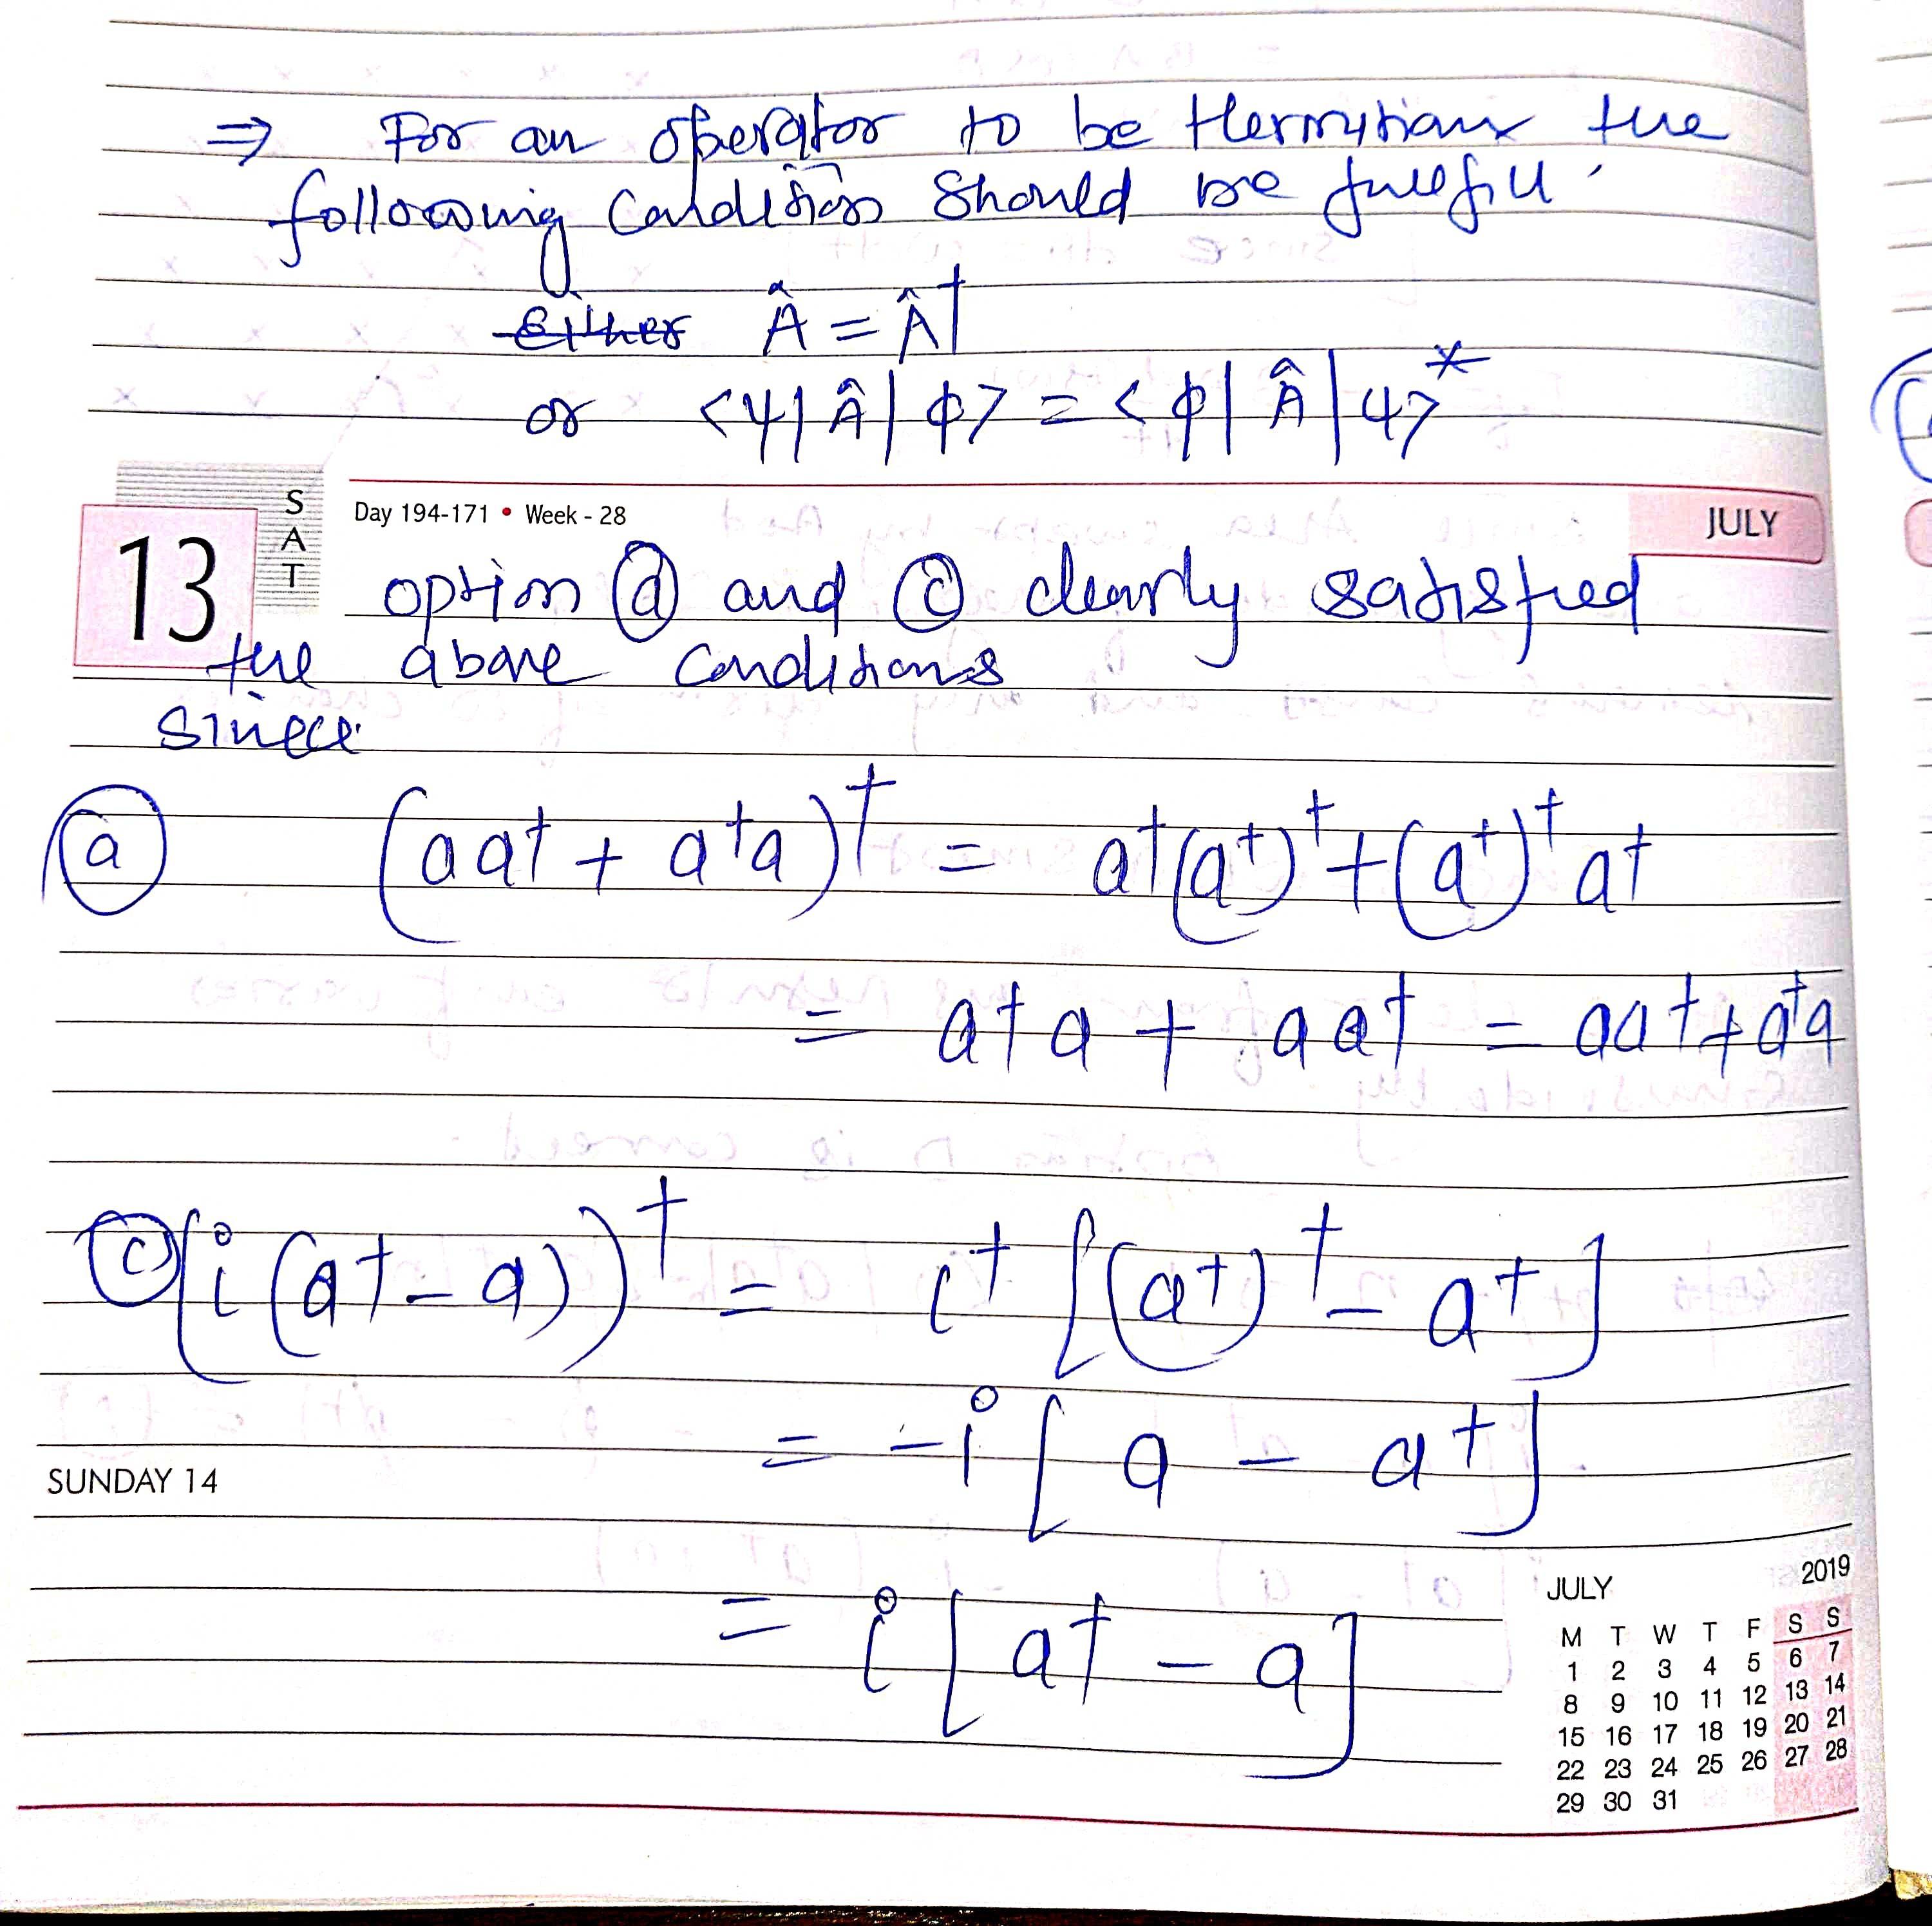 ⇒ For an operator to be Hermytian the
following Condition Should be fullfill.
Either Â = Â†
or <ψ|Â|ϕ> = <ϕ|Â|ψ>*
13 SAT Day 194-171 • Week - 28 JULY
option ⓐ and ⓒ clearly satisfied
the above Conditions
Sinece
ⓐ (aa† + a†a)† = a†(a†)† + (a†)†a†
= a†a + aa† = aa† + a†a
ⓒ (i(a† - a))† = i†[(a†)† - a†]
= -i[a - a†]
SUNDAY 14
= i[a† - a]
JULY 2019
M T W T F S S
1 2 3 4 5 6 7
8 9 10 11 12 13 14
15 16 17 18 19 20 21
22 23 24 25 26 27 28
29 30 31